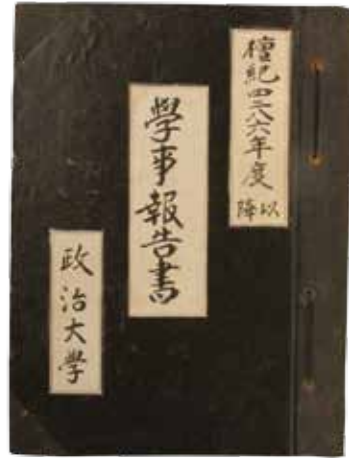 檀紀四二八六年度
以降
學事報告書
政治大學